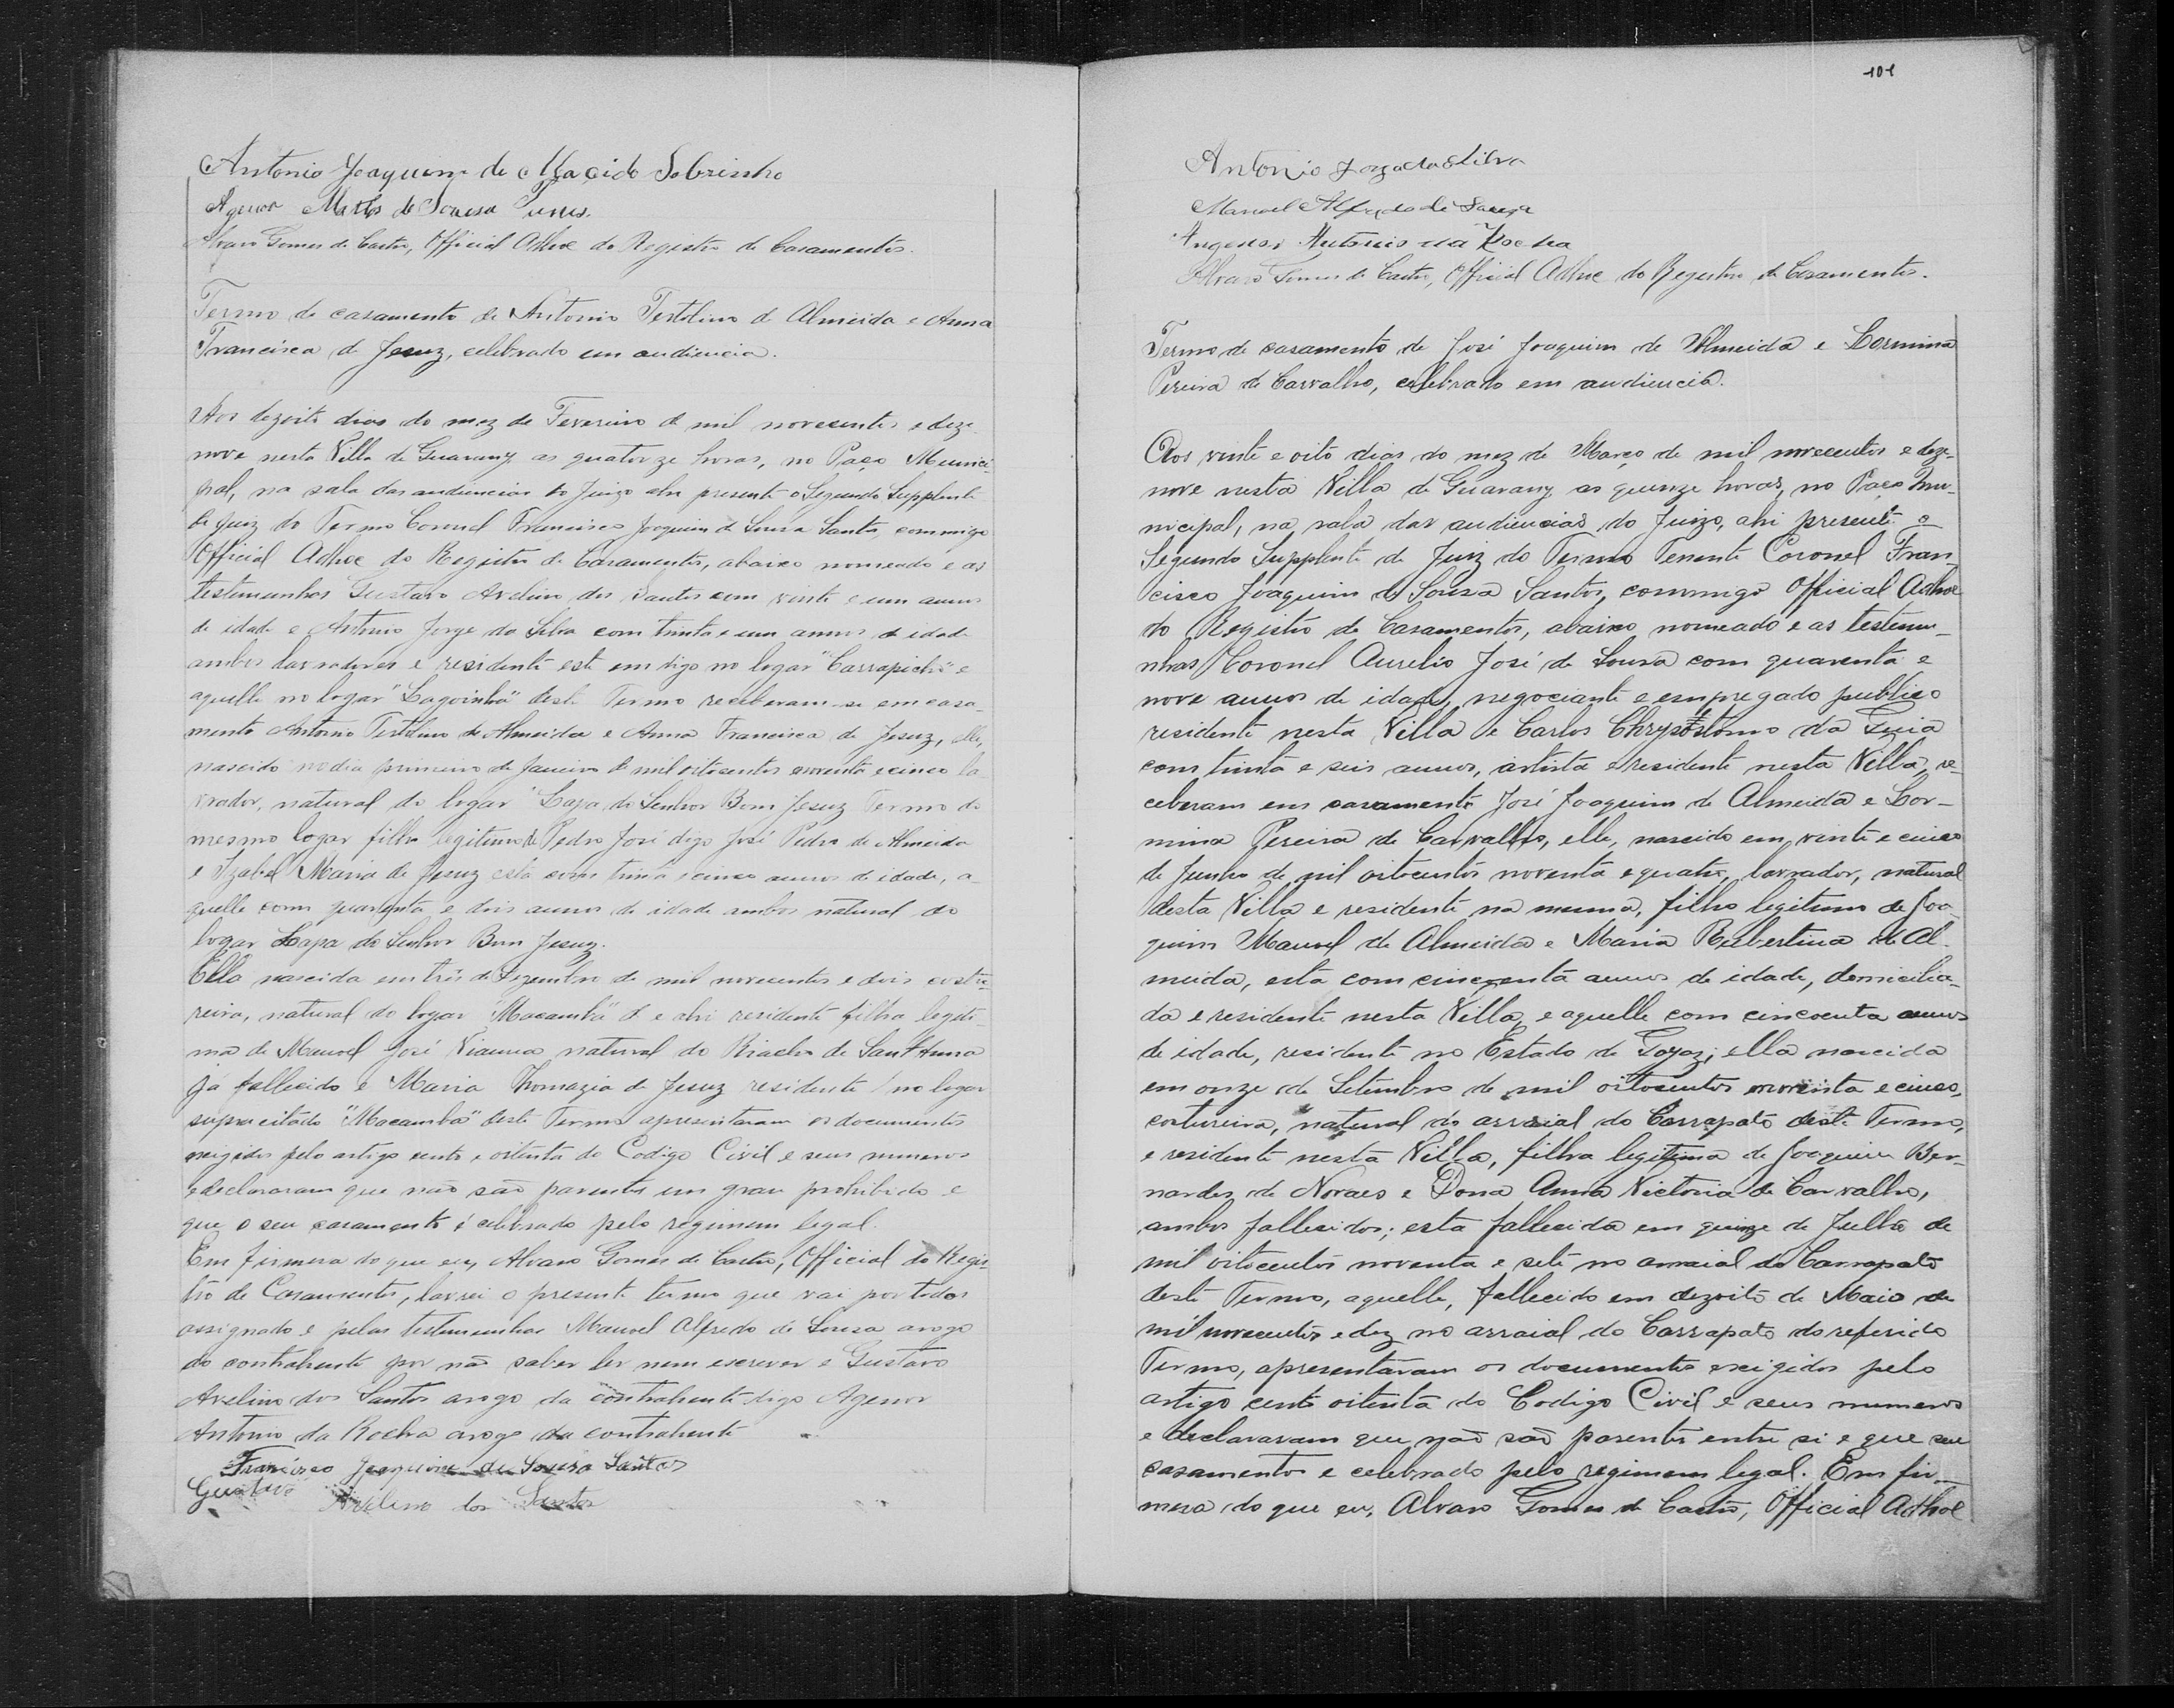 Antonio Joaquim de Macido Sobrinho
Agenor Mattos de Sousa
Alvaro Gomes de Castro, Official Adhoc do Registro de Casamentos.
Termo de casamento de Antonio Tertolino de Almeida e Anna
Francisca de Jesuz, celebrado em audiencia.
Aos dezoito dias do mez de Fevereiro de mil novecentos e deze-
nove nesta Villa de Guarany as quatorze horas, no Paço Munici-
pal, na sala das audiencias do Juizo ahi presente o Segundo Supplente
de Juiz do Termo Coronel Francisco Joaquim de Sousa Santos, commigo
Official Adhoc do Registro de Casamentos, abaixo nomeado e as
testemunhas Gustavo Avelino dos Santos com vinte e um annos
de idade e Antonio Jorge da Silva com trinta e um annos de idade
ambos lavradores e residente este em digo no logar "Carrapicho" e
aquelle no logar "Lagoinha" deste Termo receberam-se em casa-
mento Antonio Tertolino de Almeida e Anna Francisca de Jesuz, elle,
nascido no dia primeiro de Janeiro de mil oitocentos noventa e cinco la-
vrador, natural do logar "Lapa do Senhor Bom Jesuz Termo do
mesmo logar filho legitimo de Pedro José digo José Pedro de Almeida
e Izabel Maria de Jesuz esta com trinta e cinco annos de idade, a-
quelle com quarenta e dois annos de idade ambos natural do
logar Lapa do Senhor Bom Jesuz.
Ella nascida em três de Dezembro de mil novecentos e dois costu-
reira, natural do logar "Macamba" e ahi residente filha legiti-
ma de Manoel José Vianna natural do Riacho de Sant'Anna
já fallecido e Maria Thomazia de Jesuz residente no logar
supracitado "Macamba" deste Termo apresentaram os documentos
exigidos pelo artigo cento e oitenta do Codigo Civil e seus numeros
e declararam que não são parentes em grau prohibido e
que o seu casamento é celebrado pelo regimem legal.
Em firmesa do que eu, Alvaro Gomes de Castro, Official do Regis-
tro de Casamentos, lavrei o presente termo que vai por todos
assignado e pelas testemunhas Manoel Alfredo de Sousa arogo
do contrahente por não saber ler nem escrever e Gustavo
Avelino dos Santos arogo da contrahente digo Agenor
Antonio da Rocha arogo da contrahente
Francisco Joaquim de Sousa Santos
Gustavo Avelino dos Santos
101
Antonio Jorge da Silva
Manoel Alfredo de Sousa
Angenor Antonio da Rocha
Alvaro Gomes de Castro, Official Adhoc do Registro de Casamentos.
Termo de casamento de José Joaquim de Almeida e Lormina
Pereira de Carvalho, celebrado em audiencia.
Aos vinte e oito dias do mez de Março de mil novecentos e deze-
nove nesta Villa de Guarany as quinze horas, no Paço Mu-
nicipal, na sala das audiencias do Juizo, ahi presente o
Segundo Supplente de Juiz do Termo Tenente Coronel Fran-
cisco Joaquim de Sousa Santos, commigo Official Adhoc
do Registro de Casamentos, abaixo nomeado e as testemu-
nhas Coronel Aurelio José de Sousa com quarenta e
nove annos de idade, negociante e empregado publico
residente nesta Villa e Carlos Chrysostomo da
com trinta e seis annos, artista e residente nesta Villa, re-
ceberam em casamento José Joaquim de Almeida e Lor-
mina Pereira de Carvalho, elle, nascido em vinte e cinco
de Junho de mil oitocentos noventa e quatro, lavrador, natural
desta Villa e residente na mesma, filho legitimo de Joa-
quim Manoel de Almeida e Maria Rubertina de Al-
meida, esta com cincoenta annos de idade, domicilia-
da e residente nesta Villa, e aquelle com cincoenta annos
de idade, residente no Estado de Goyaz; ella nascida
em onze de Setembro de mil oitocentos noventa e cinco,
costureira, natural do arraial do Carrapato deste Termo,
e residente nesta Villa, filha legitima de Joaquim Ber-
nardes de Novaes e Dona Anna Victoria de Carvalho,
ambos fallecidos; esta fallecida em quinze de Julho de
mil oitocentos noventa e sete no arraial do Carrapato
deste Termo, aquelle, fallecido em dezoito de Maio de
mil novecentos e dez no arraial do Carrapato do referido
Termo, apresentaram os documentos exigidos pelo
artigo cento oitenta do Codigo Civil e seus numeros
e declararam que não são parentes entre si e que seu
casamento e celebrado pelo regimem legal. Em fir-
mesa do que eu, Alvaro Gomes de Castro, Official Adhoc